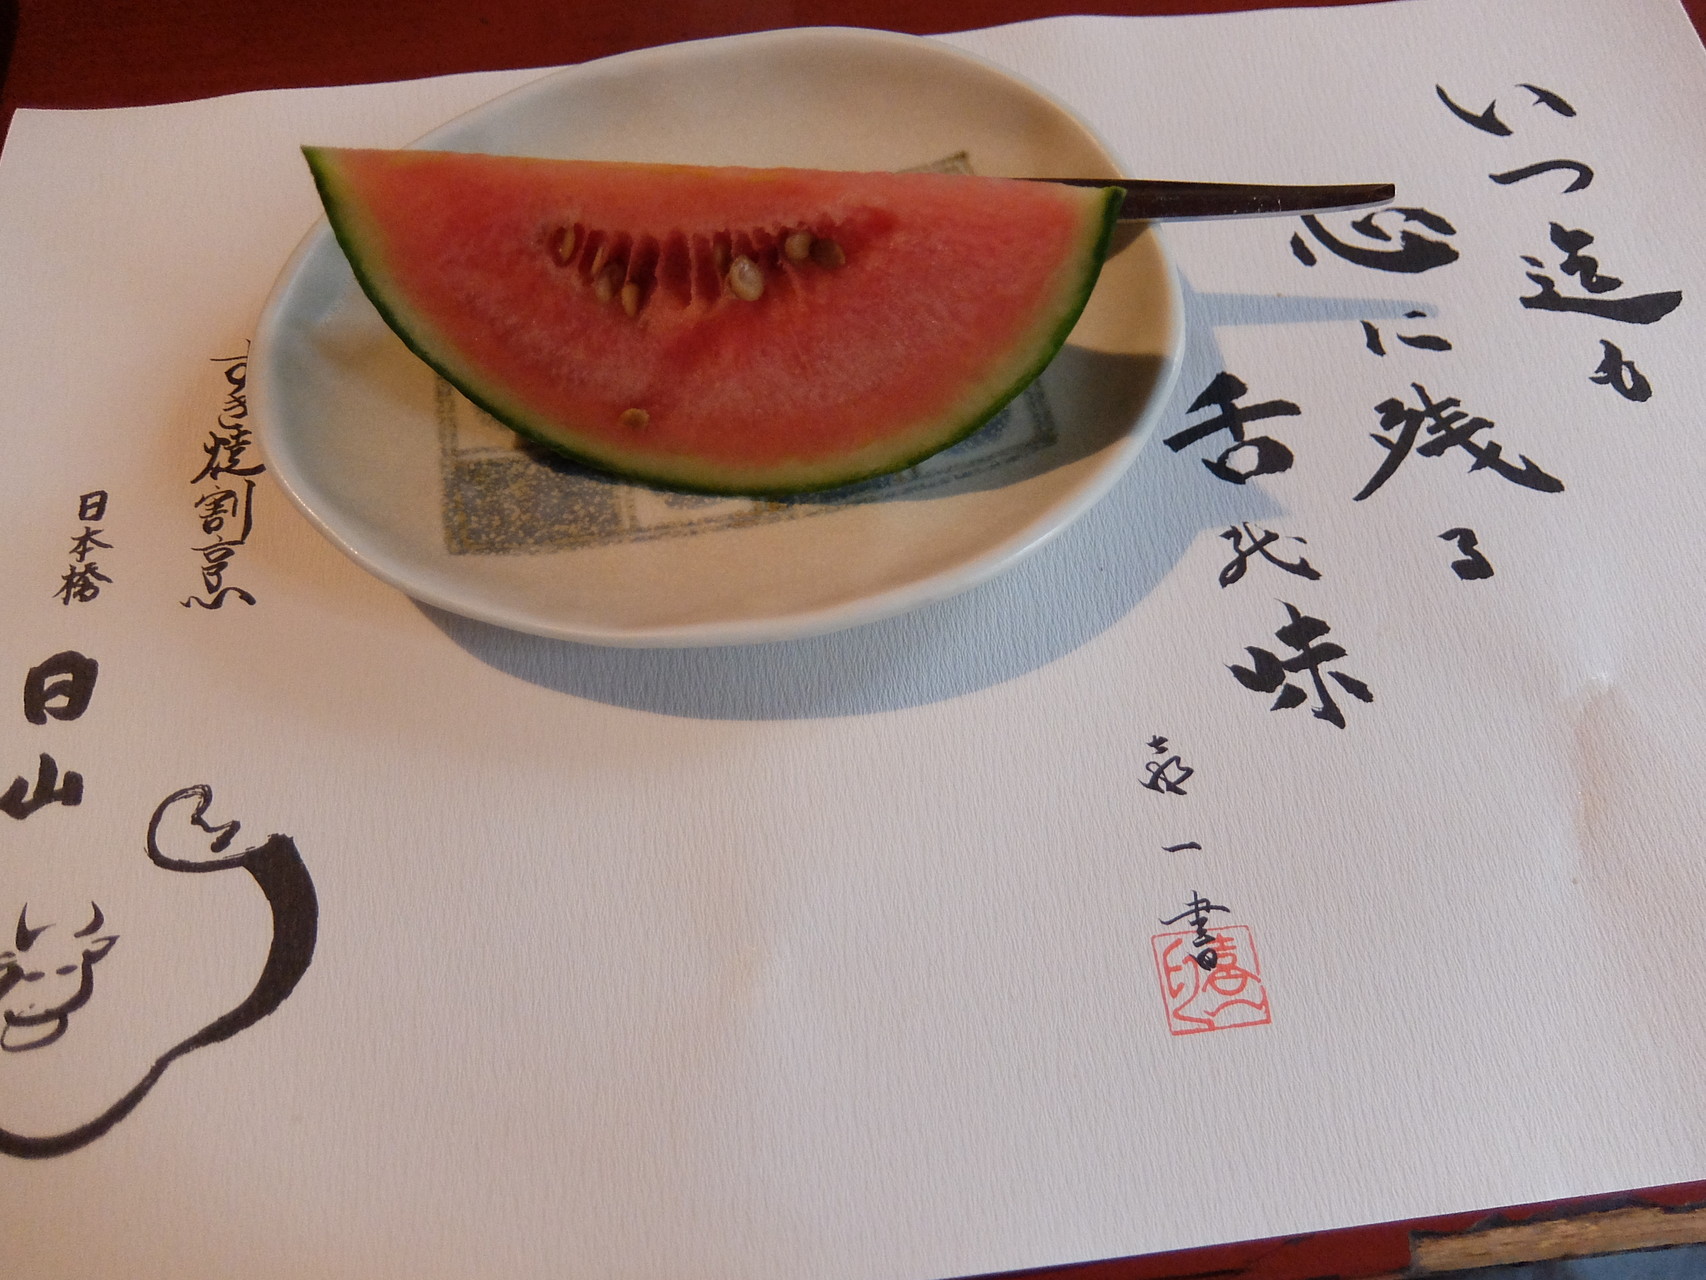 いつ迄も
心に残る
舌代味
喜一書
すき焼割烹
日本橋
日山